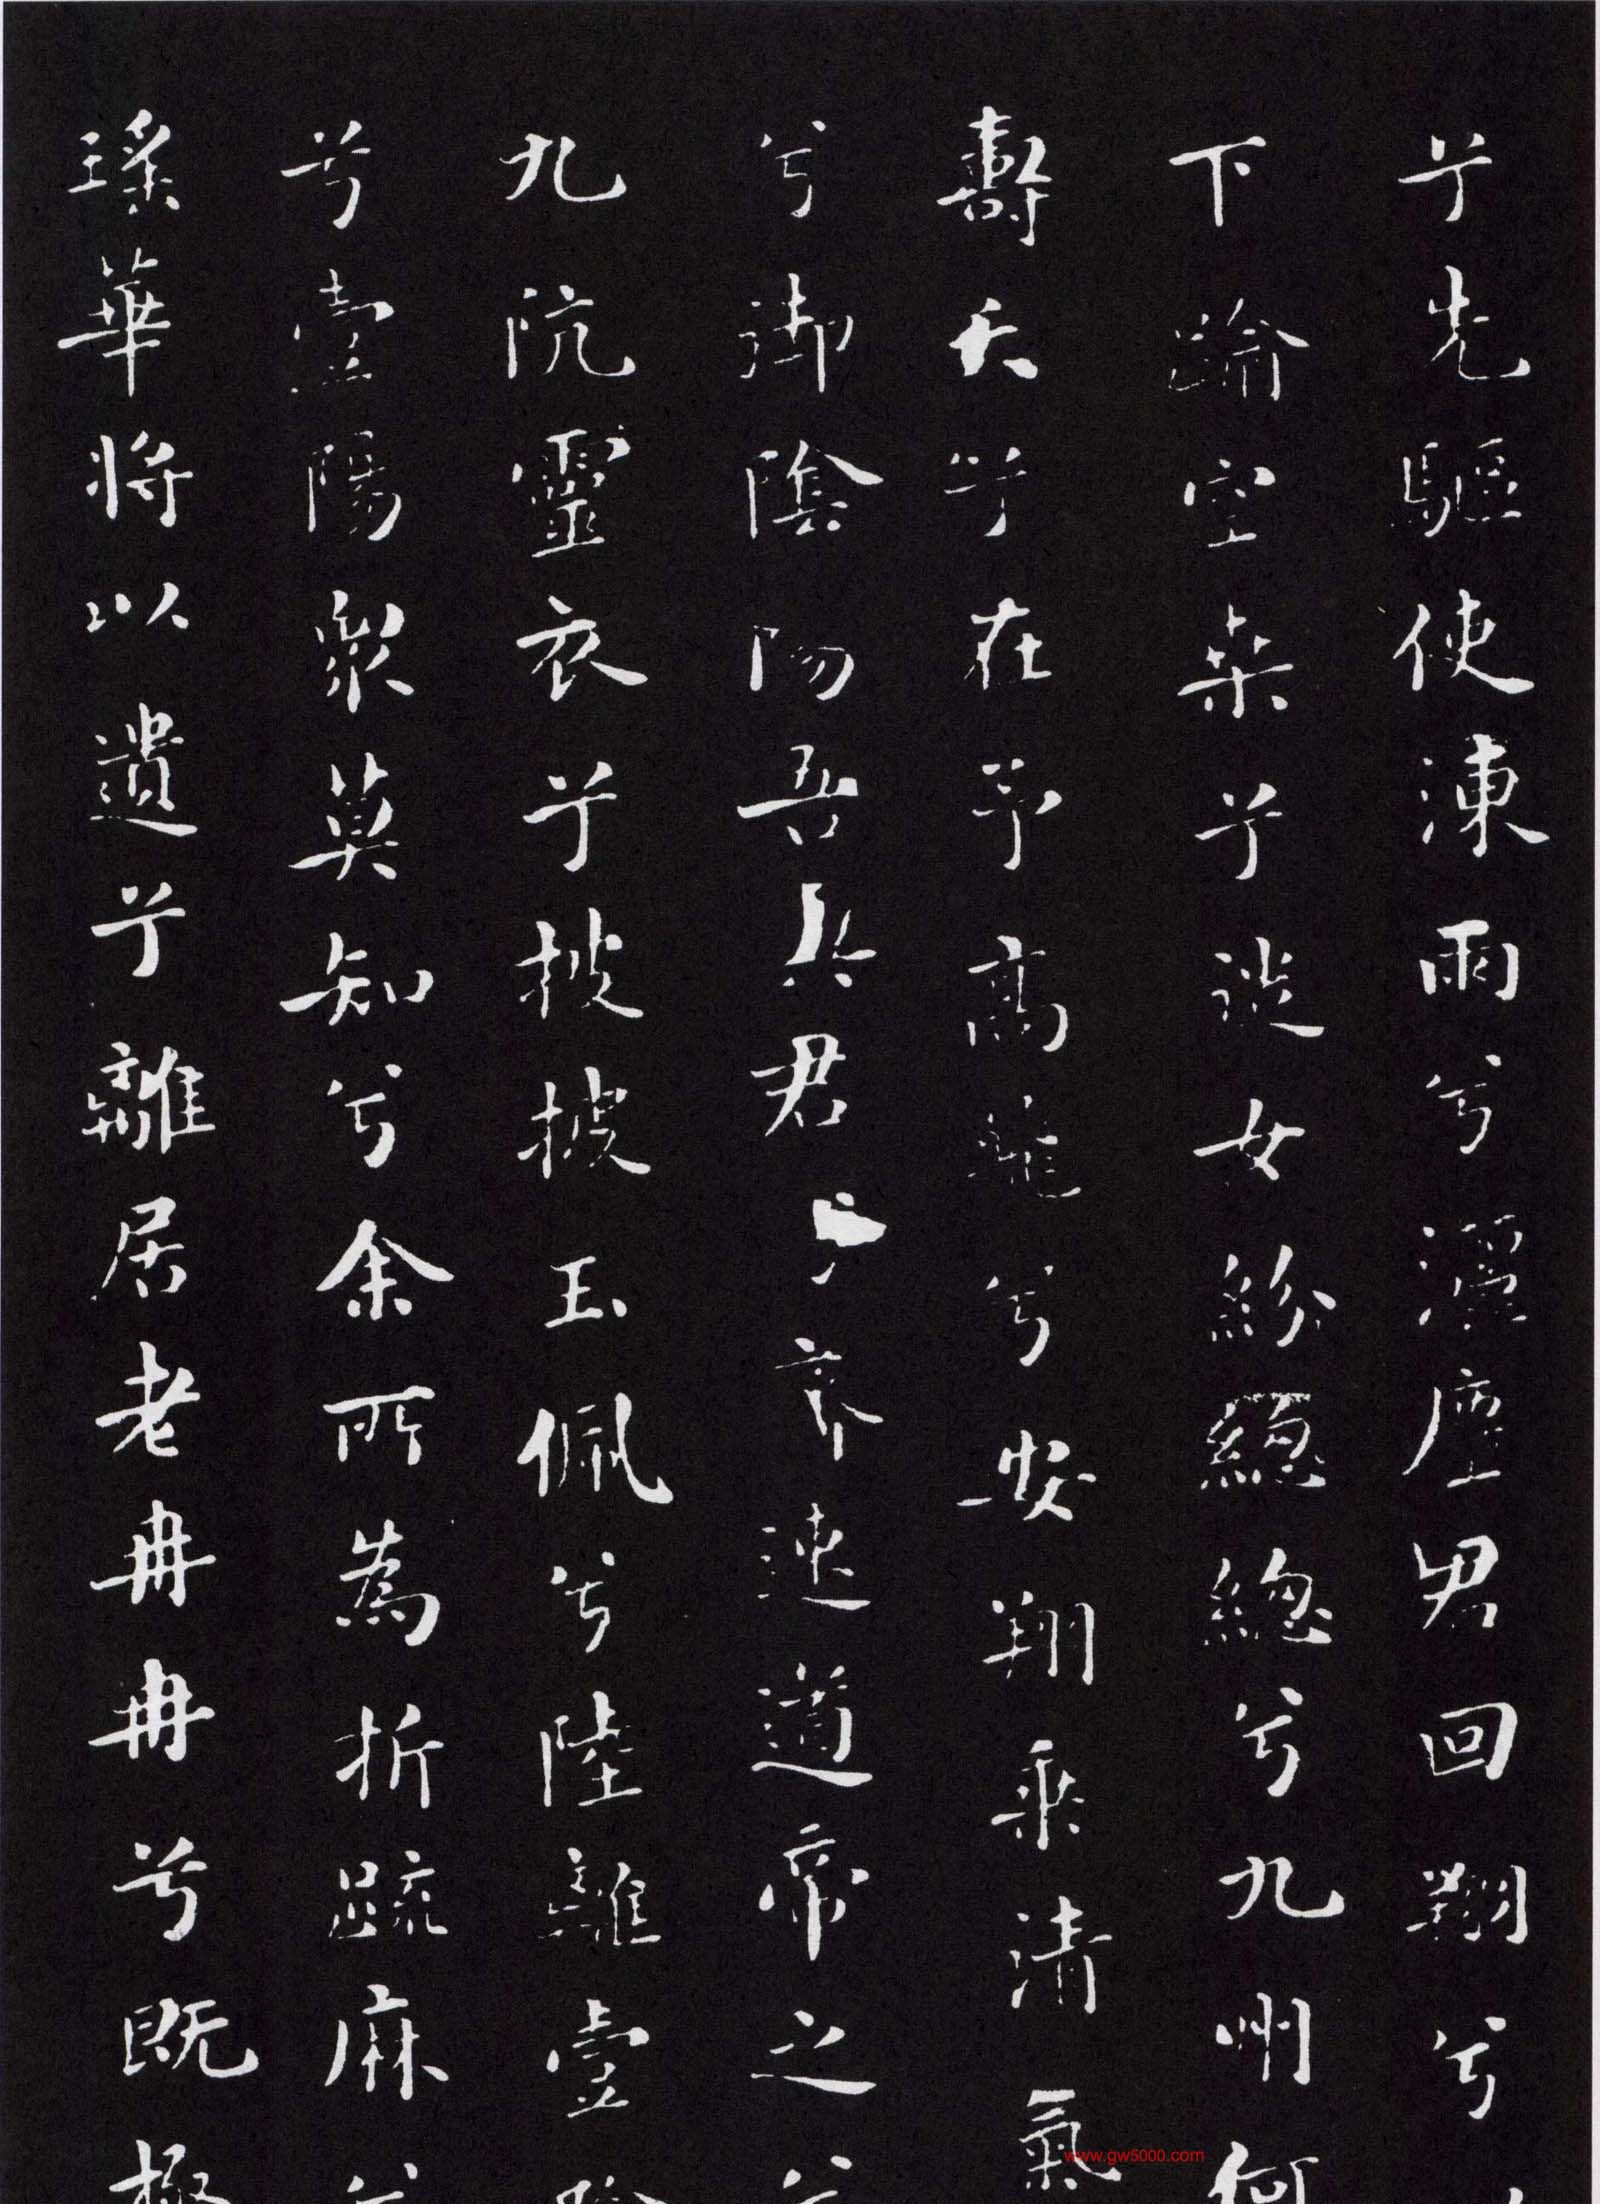 乎先驅使涷雨兮灑塵君回翔兮
下踰空桒乎從女紛總總兮九州何
壽夭乎在予高飛兮安翔乘清氣
兮御陰陽吾與君兮齊速道帝之兮
九阬靈衣乎披披玉佩兮陸離壹陰
兮壹陽衆莫知兮余所為折疏麻兮
瑤華將以遺乎離居老冉冉兮既極
www.gw5000.com